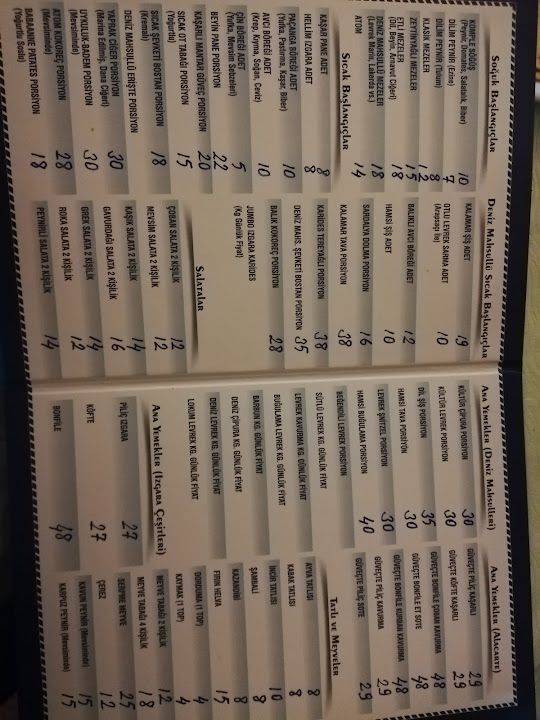 Soğuk Başlangıçlar
KOMPLE SÖĞÜŞ 10
(Peynir, Domates, Salatalık, Biber)
DİLİM PEYNİR (Ezine) 7
DİLİM PEYNİR (Tulum) 8
KLASİK MEZELER 12
ZEYTİNYAĞLI MEZELER 15
ETLİ MEZELER 18
(Dil, Beyin, Arnavut Ciğeri)
DENİZ MAHSULLÜ MEZELER 18
(Levrek Marin, Lakerda vs.)
ATOM 14
Sıcak Başlangıçlar
KAŞAR PANE ADET 8
HELLİM IZGARA ADET 8
PAÇANGA BÖREĞİ ADET 10
(Krep, Pastırma, Kaşar, Biber)
AVCI BÖREĞİ ADET 10
(Krep, Kıyma, Soğan, Ceviz)
ÇİN BÖREĞİ ADET 5
(Yufka, Mevsim Sebzeleri)
BEYİN PANE PORSİYON 22
KAŞARLI MANTAR GÜVEÇ PORSİYON 20
SICAK OT TABAĞI PORSİYON 15
(Yoğurtlu)
SICAK ŞEVKETİ BOSTAN PORSİYON 18
(Kremalı)
DENİZ MAHSULLÜ ERİŞTE PORSİYON
YAPRAK CİĞER PORSİYON 30
(Marine Edilmiş, Dana Ciğeri)
UYKULUK-BADEM PORSİYON 30
(Mevsiminde)
ATOM KOKOREÇ PORSİYON 28
(Mevsiminde)
BABAANNE PATATES PORSİYON 18
(Yoğurtlu Soslu)
Deniz Mahsullü Sıcak Başlangıçlar
KALAMAR ŞİŞ ADET 19
OTLU LEVREK SARMA ADET 10
(Arapsaçı ile)
BALIKLI AVCI BÖREĞİ ADET 12
HAMSİ ŞİŞ ADET 10
SARDALYA DOLMA PORSİYON 16
KALAMAR TAVA PORSİYON 38
KARİDES TEREYAĞLI PORSİYON 38
DENİZ MAHS. ŞEVKETİ BOSTAN PORSİYON 35
BALIK KOKOREÇ PORSİYON 28
JUMBO IZGARA KARİDES
(Kg Günlük Fiyat)
Salatalar
ÇOBAN SALATA 2 KİŞİLİK 12
MEVSİM SALATA 2 KİŞİLİK 12
KAŞIK SALATA 2 KİŞİLİK 14
GAVURDAĞI SALATA 2 KİŞİLİK 16
GREK SALATA 2 KİŞİLİK 14
ROKA SALATA 2 KİŞİLİK 12
PEYNİRLİ SALATA 2 KİŞİLİK 14
Ana Yemekler (Deniz Mahsulleri)
KÜLTÜR ÇİPURA PORSİYON 30
KÜLTÜR LEVREK PORSİYON 30
DİL ŞİŞ PORSİYON 35
HAMSİ TAVA PORSİYON 30
LEVREK ŞNİTZEL PORSİYON 30
HAMSİ BUĞULAMA PORSİYON
BEĞENDİLİ LEVREK PORSİYON 40
SÜTLÜ LEVREK KG. GÜNLÜK FİYAT
LEVREK KAVURMA KG. GÜNLÜK FİYAT
BUĞULAMA LEVREK KG. GÜNLÜK FİYAT
BARBUN KG. GÜNLÜK FİYAT
DENİZ ÇİPURA KG. GÜNLÜK FİYAT
DENİZ LEVREK KG. GÜNLÜK FİYAT
LOKUM LEVREK KG. GÜNLÜK FİYAT
Ana Yemekler (Izgara Çeşitleri)
PİLİÇ IZGARA 27
KÖFTE 27
BONFİLE 48
Ana Yemekler (Alacarte)
GÜVEÇTE PİLİÇ KAŞARLI 29
GÜVEÇTE KÖFTE KAŞARLI 29
GÜVEÇTE BONFİLE ÇOBAN KAVURMA 48
GÜVEÇTE BONFİLE ET SOTE 48
GÜVEÇTE BONFİLE KURBAN KAVURMA 48
GÜVEÇTE PİLİÇ KAVURMA 29
GÜVEÇTE PİLİÇ SOTE 29
Tatlı ve Meyveler
AYVA TATLISI 8
KABAK TATLISI 8
İNCİR TATLISI 10
ŞAMBALİ 8
KAZANDİBİ 8
FIRIN HELVA 15
DONDURMA (1 TOP) 4
KAYMAK (1 TOP) 4
MEYVE TABAĞI 2 KİŞİLİK 12
MEYVE TABAĞI 4 KİŞİLİK 18
SERPME MEYVE 25
ÇEREZ 12
KAVUN PEYNİR (Mevsiminde) 15
KARPUZ PEYNİR (Mevsiminde) 15